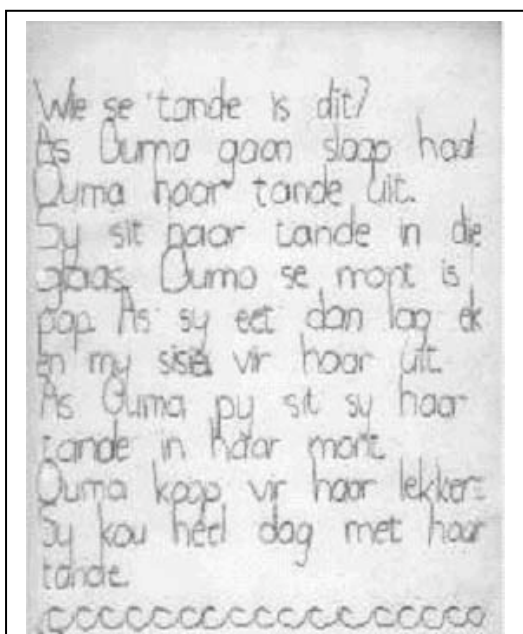 Wie se tande is dit?
As Ouma gaan slaap haal
Ouma haar tande uit.
Sy sit haar tande in die
glaas. Ouma se mont is
pap. As sy eet dan lag ek
en my sisie vir haar uit.
As Ouma py sit sy haar
tande in haar mont.
Ouma koop vir haar lekkers
Sy kou heel dag met haar
tande.